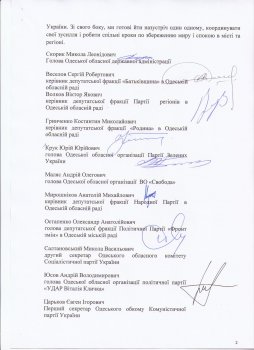 України. Зі свого боку, ми готові йти назустріч один одному, координувати
свої зусилля і робити спільні кроки по збереженню миру і спокою в місті та
регіоні.
Скорик Микола Леонідович
Голова Одеської обласної державної адміністрації
Веселов Сергій Робертович
керівник депутатської фракції «Батьківщина» в Одеській
обласній раді
Волков Віктор Якович
керівник депутатської фракції Партії регіонів в
Одеській обласній раді
Гриниченко Костянтин Миколайович
керівник депутатської фракції «Родина» в Одеській
обласній раді
Крук Юрій Юрійович
голова Одеської обласної організації Партії Зелених
України
Масяс Андрій Олегович
голова Одеської обласної організації ВО «Свобода»
Мирошніков Анатолій Михайлович
керівник депутатської фракції Народної Партії в
Одеській обласній раді
Остапенко Олександр Анатолійович
голова депутатської фракції Політичної Партії «Фронт
змін» в Одеській міській раді
Салтановський Микола Васильович
другий секретар Одеського обласного комітету
Соціалістичної партії України
Юсов Андрій Володимирович
голова Одеської обласної організації політичної партії
«УДАР Віталія Кличка»
Царьков Євген Ігорович
Перший секретар Одеського обкому Комуністичної
партії України
2